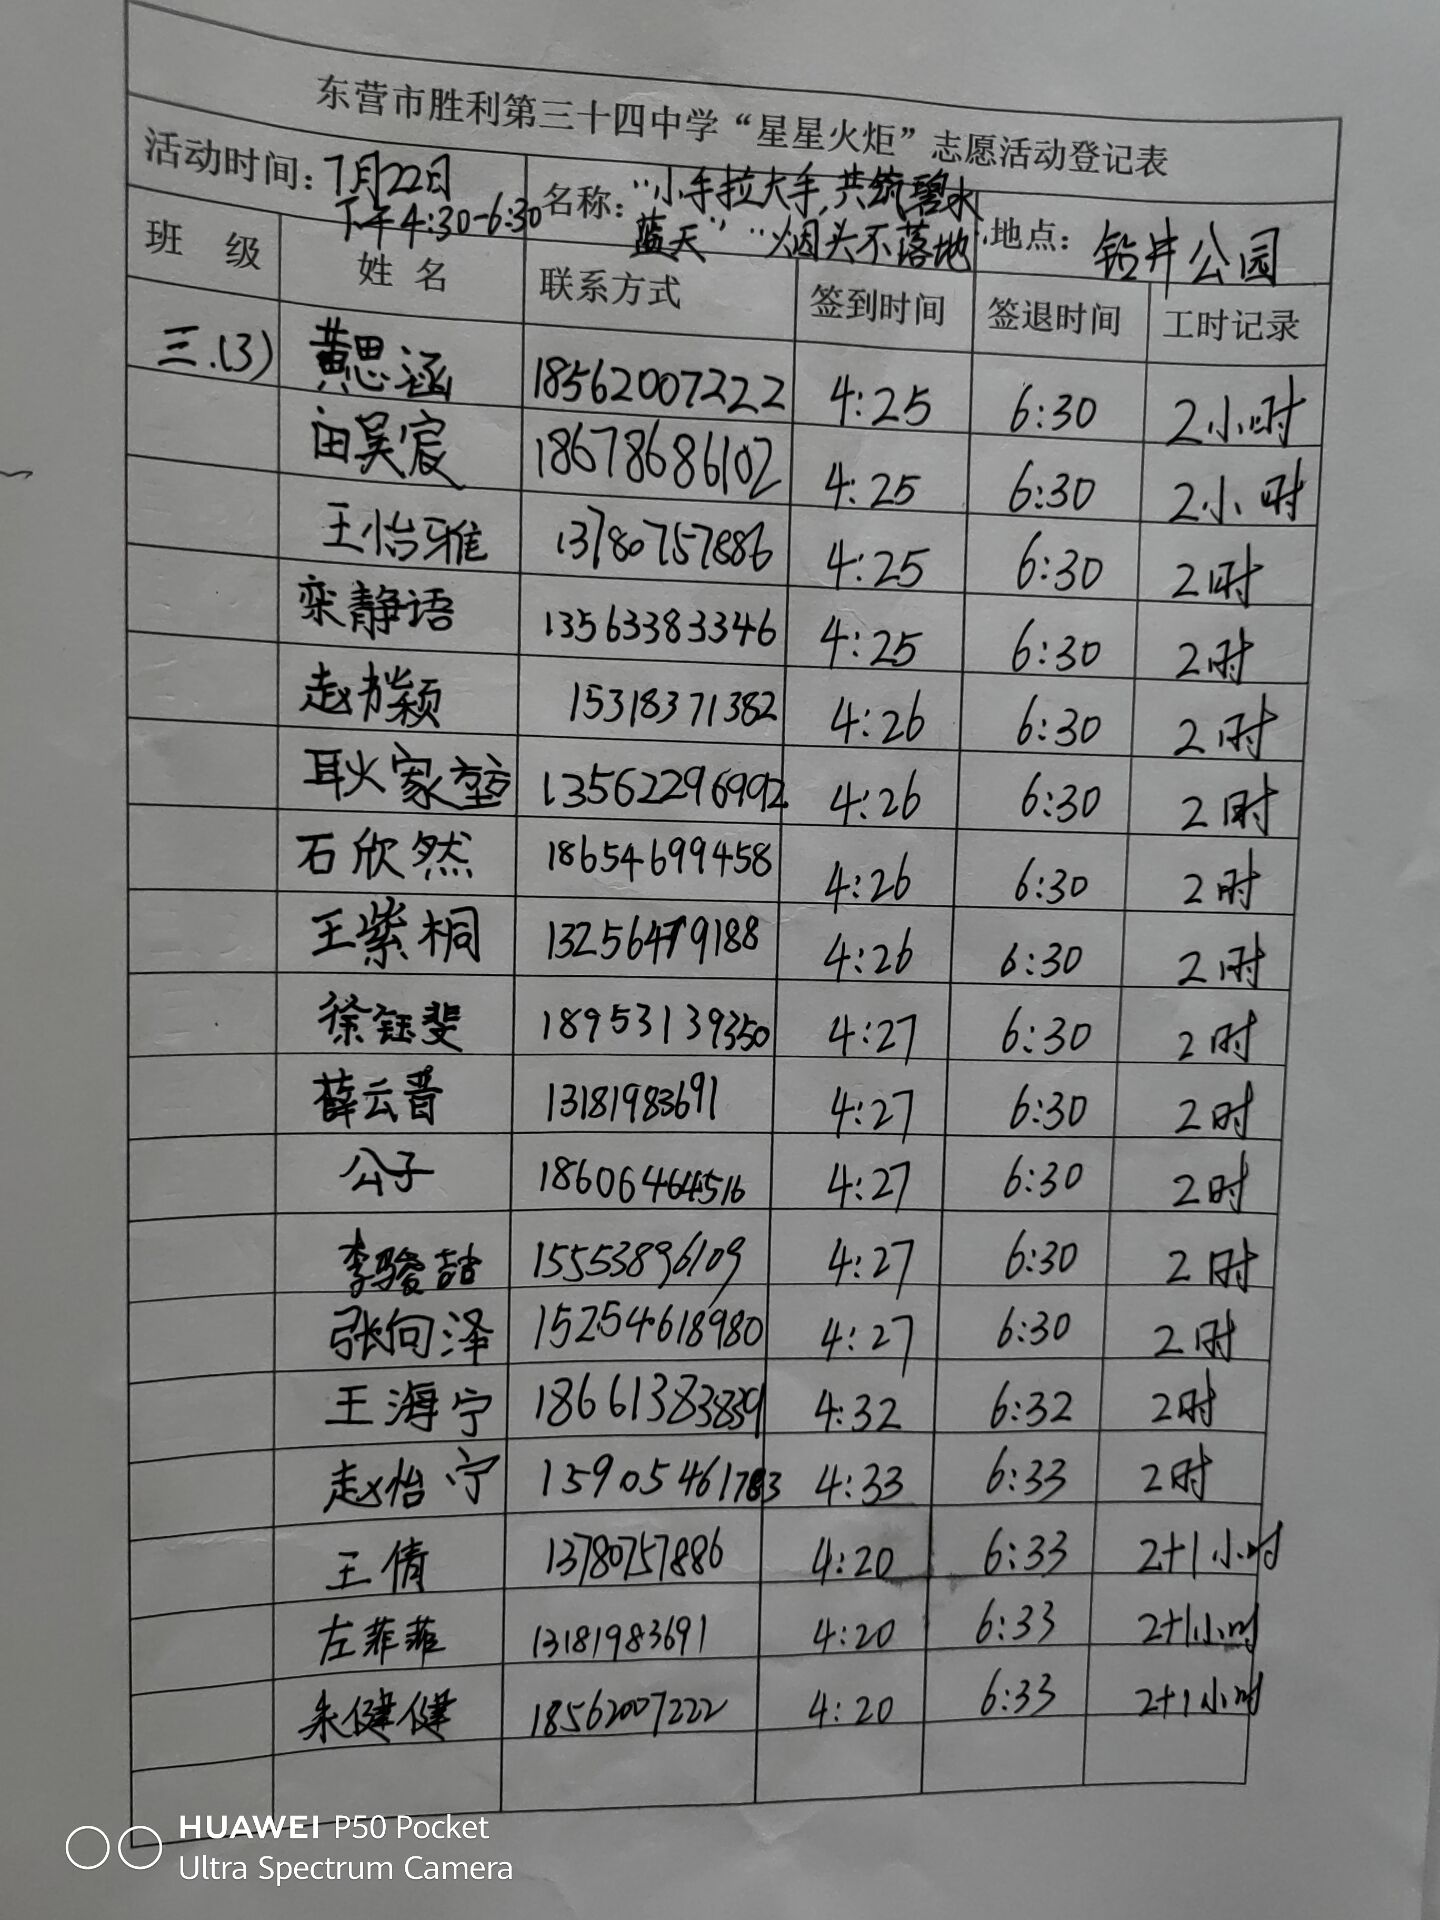 东营市胜利第三十四中学“星星火炬”志愿活动登记表
活动时间：7月22日 下午4:30-6:30 名称：“小手拉大手,共筑碧水蓝天”“烟头不落地” 地点：钻井公园
班 级 姓 名 联系方式 签到时间 签退时间 工时记录
三.(3) 黄思涵 18562007222 4:25 6:30 2小时
田昊宸 18678686102 4:25 6:30 2小时
王怡雅 13780757886 4:25 6:30 2时
栾静语 13563383346 4:25 6:30 2时
赵颖 15318371382 4:26 6:30 2时
耿家堃 13562296992 4:26 6:30 2时
石欣然 18654699458 4:26 6:30 2时
王紫桐 13256479188 4:26 6:30 2时
徐钰斐 18953139350 4:27 6:30 2时
薛云晋 13181983691 4:27 6:30 2时
公子 18606464516 4:27 6:30 2时
李骏喆 15553896109 4:27 6:30 2时
张向泽 15254618980 4:27 6:30 2时
王海宁 18661383839 4:32 6:32 2时
赵怡宁 15905461783 4:33 6:33 2时
王倩 13780757886 4:20 6:33 2+1小时
左菲菲 13181983691 4:20 6:33 2+1小时
朱健健 18562007222 4:20 6:33 2+1小时
HUAWEI P50 Pocket
Ultra Spectrum Camera